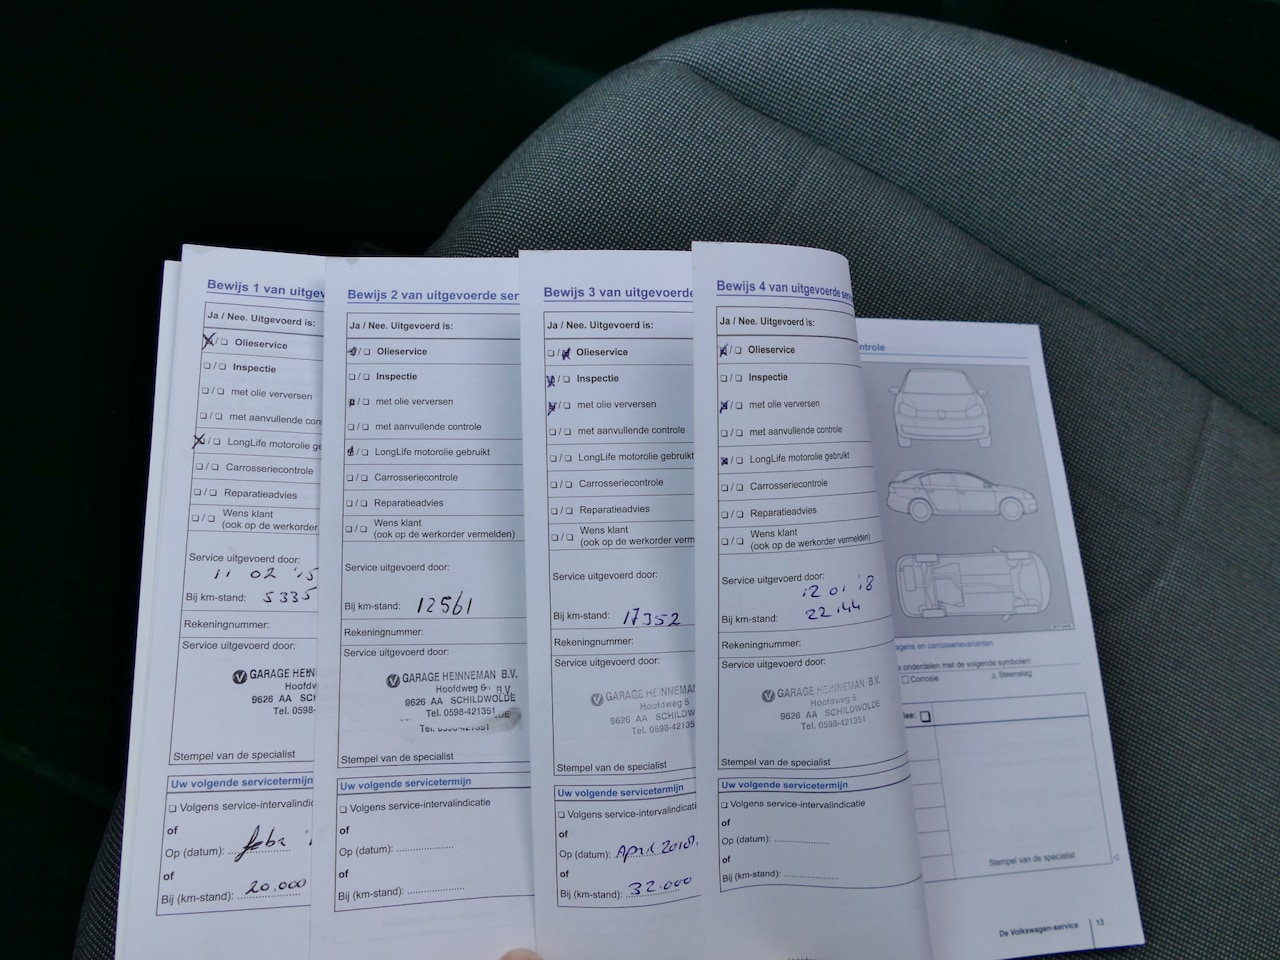 Bewijs 1 van uitgev
Ja / Nee. Uitgevoerd is:
Olieservice
Inspectie
met olie verversen
met aanvullende con
LongLife motorolie ge
Carrosseriecontrole
Reparatieadvies
Wens klant
(ook op de werkorder
Service uitgevoerd door:
11 02 '15
Bij km-stand: 5335
Rekeningnummer:
Service uitgevoerd door:
GARAGE HEINN
Hoofdw
9626 AA SCHIL
Tel. 0598-
Stempel van de specialist
Uw volgende servicetermijn
Volgens service-intervalindic
of
Op (datum): febr
of
Bij (km-stand): 20.000
Bewijs 2 van uitgevoerde ser
Ja / Nee. Uitgevoerd is:
Olieservice
Inspectie
met olie verversen
met aanvullende controle
LongLife motorolie gebruikt
Carrosseriecontrole
Reparatieadvies
Wens klant
(ook op de werkorder vermelden)
Service uitgevoerd door:
Bij km-stand: 12561
Rekeningnummer:
Service uitgevoerd door:
GARAGE HEINNEMAN B.V.
Hoofdweg 5
9626 AA SCHILDWOLDE
Tel. 0598-421351
Stempel van de specialist
Uw volgende servicetermijn
Volgens service-intervalindicatie
of
Op (datum):
of
Bij (km-stand):
Bewijs 3 van uitgevoerde
Ja / Nee. Uitgevoerd is:
Olieservice
Inspectie
met olie verversen
met aanvullende controle
LongLife motorolie gebruikt
Carrosseriecontrole
Reparatieadvies
Wens klant
(ook op de werkorder verm
Service uitgevoerd door:
Bij km-stand: 17352
Rekeningnummer:
Service uitgevoerd door:
GARAGE HEINNEMAN
Hoofdweg 5
9626 AA SCHILDW
Tel. 0598-42135
Stempel van de specialist
Uw volgende servicetermijn
Volgens service-intervalindicati
of
Op (datum): April 2018
of
Bij (km-stand): 32.000
Bewijs 4 van uitgevoerde servi
Ja / Nee. Uitgevoerd is:
Olieservice
Inspectie
met olie verversen
met aanvullende controle
LongLife motorolie gebruikt
Carrosseriecontrole
Reparatieadvies
Wens klant
(ook op de werkorder vermelden)
Service uitgevoerd door:
12 01 '18
Bij km-stand: 22144
Rekeningnummer:
Service uitgevoerd door:
GARAGE HEINNEMAN B.V.
Hoofdweg 5
9626 AA SCHILDWOLDE
Tel. 0598-421351
Stempel van de specialist
Uw volgende servicetermijn
Volgens service-intervalindicatie
of
Op (datum):
of
Bij (km-stand):
ntrole
agens en carrosserievarianten
onderdelen met de volgende symbolen:
Corrosie
Steenslag
Nee:
Stempel van de specialist
De Volkswagen-service 13